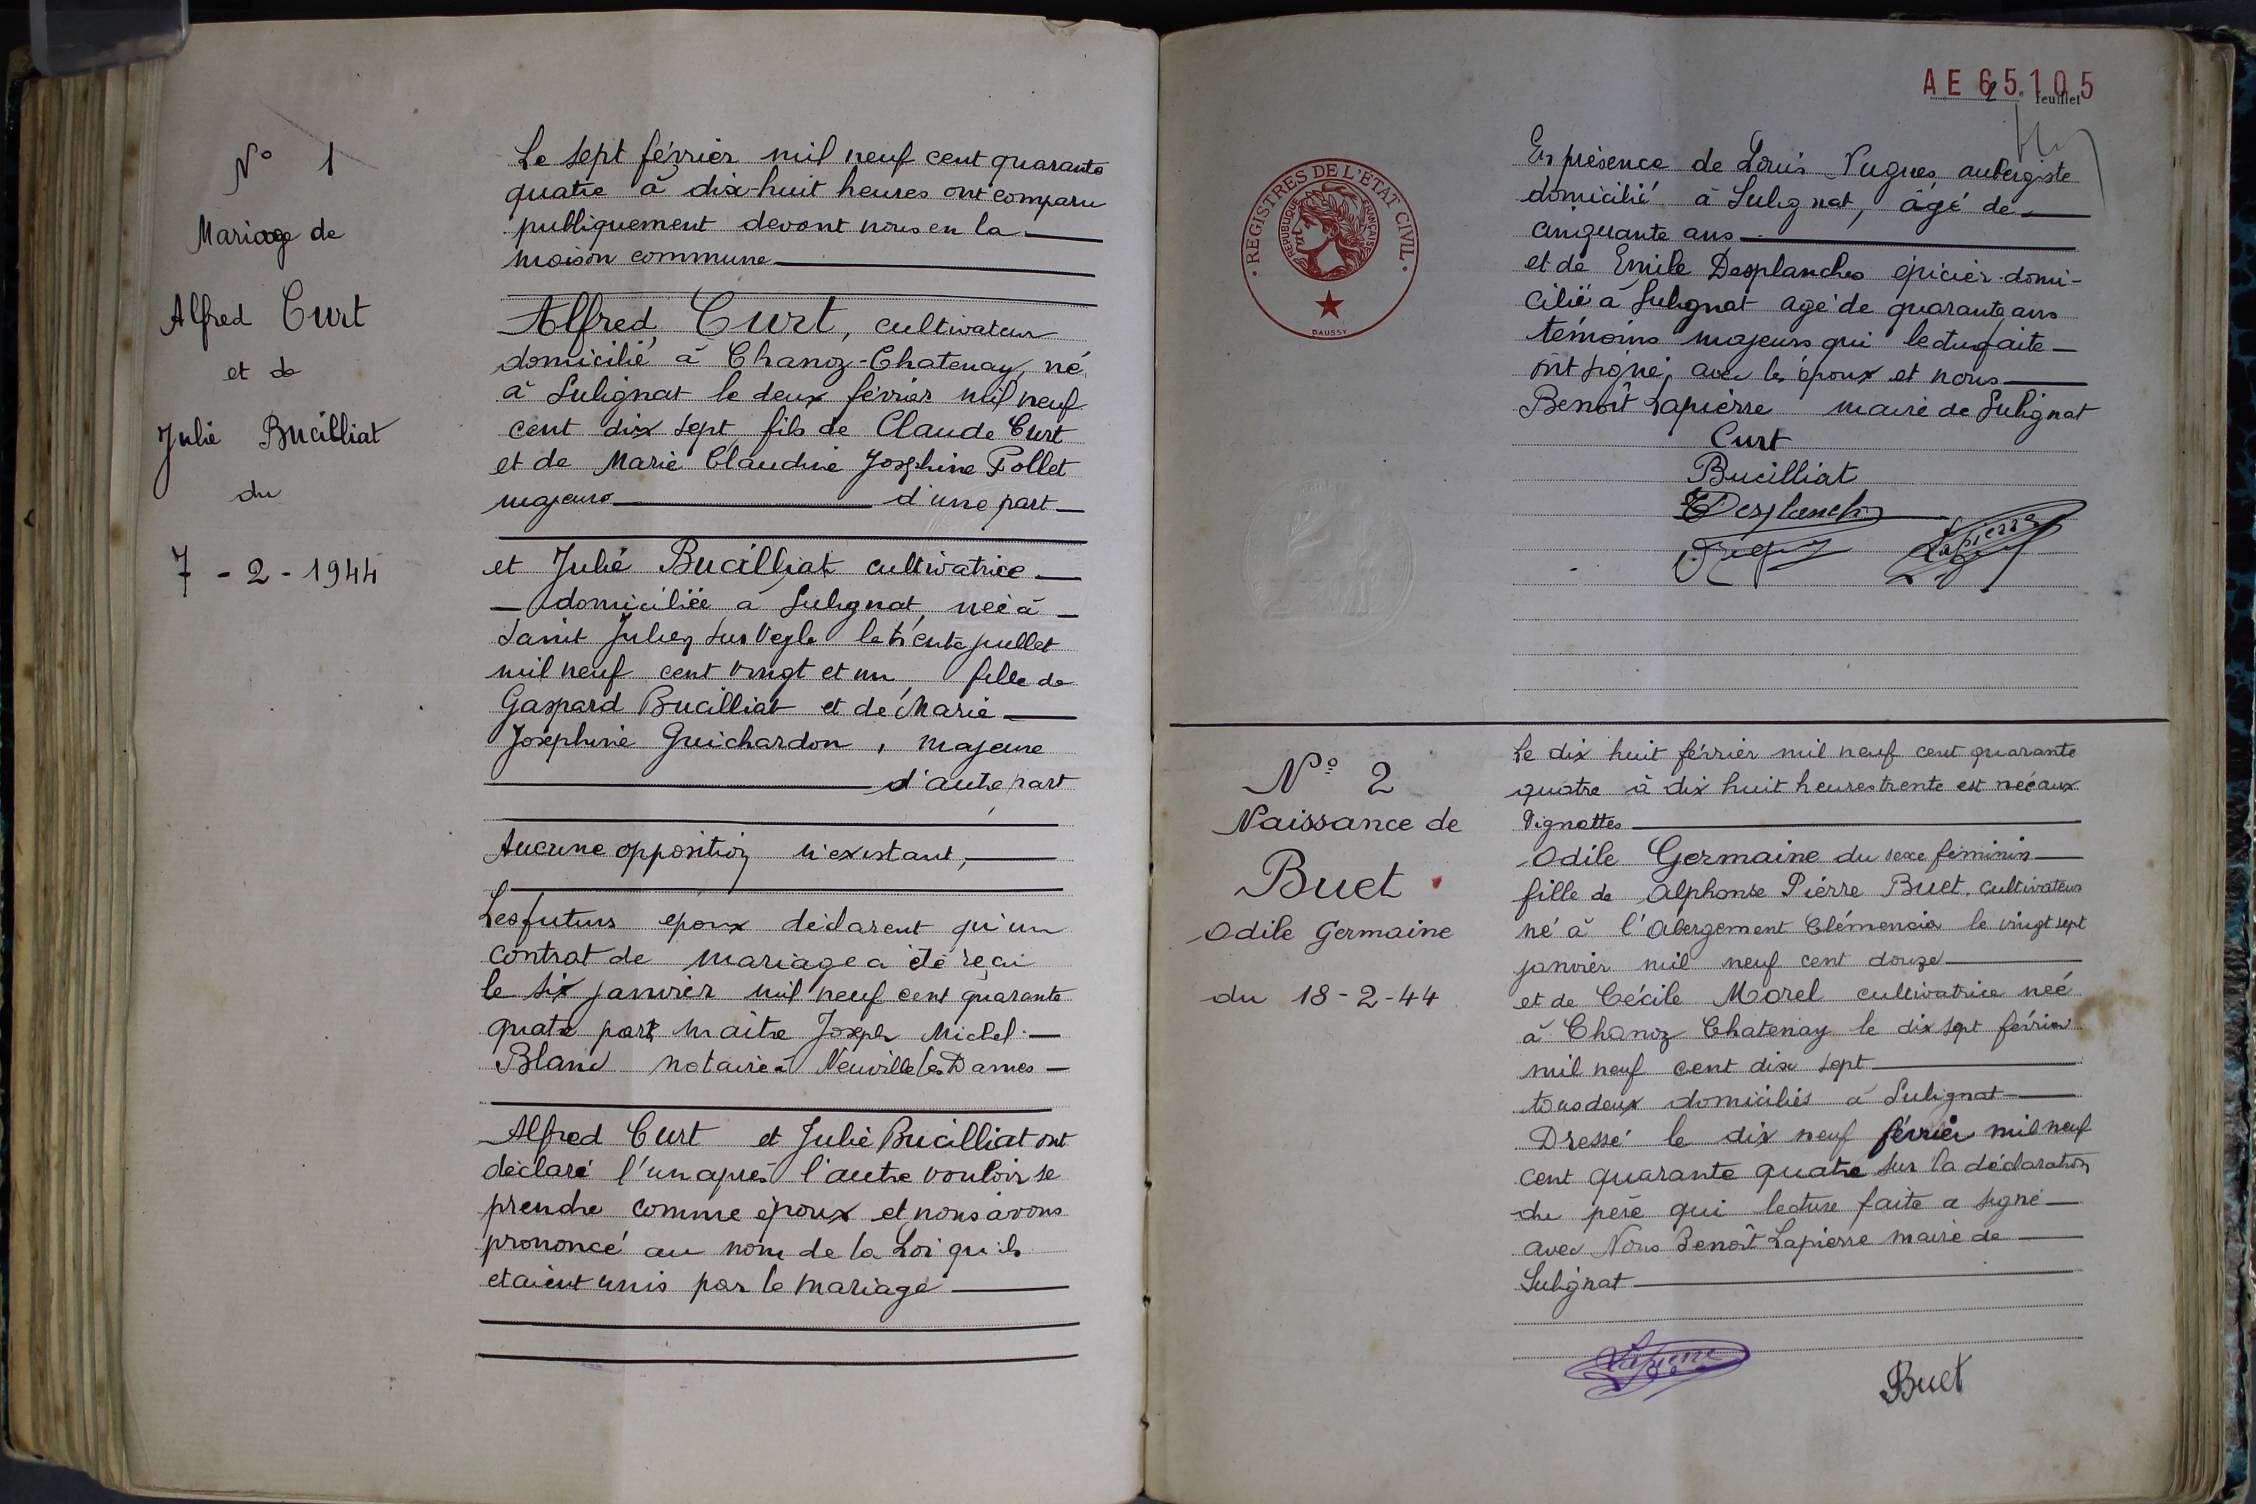 N° 1
Mariage de
Alfred Curt
et de
Julie Bucilliat
du
7 - 2 - 1944
Le sept février mil neuf cent quarante
quatre à dix-huit heures ont comparu
publiquement devant nous en la
maison commune
Alfred Curt, cultivateur
domicilié à Chanoz-Chatenay, né
à Sulignat le deux février mil neuf
cent dix sept fils de Claude Curt
et de Marie Claudine Josephine Pollet
majeurs d'une part
et Julie Bucilliat cultivatrice
domiciliée à Sulignat, née à
Saint Julien sur Veyle le trente juillet
mil neuf cent vingt et un, fille de
Gaspard Bucilliat et de Marie
Josephine Guichardon, majeure
d'autre part
Aucune opposition n'existant,
Les futurs époux déclarent qu'un
contrat de mariage a été reçu
le six janvier mil neuf cent quarante
quatre par maître Joseph Michel
Blanc notaire à Neuville les Dames
Alfred Curt et Julie Bucilliat ont
déclaré l'un après l'autre vouloir se
prendre comme époux et nous avons
prononcé au nom de la Loi qu'ils
etaient unis par le mariage
AE 65105
2e feuillet
REGISTRES DE L'ÉTAT CIVIL
RÉPUBLIQUE FRANÇAISE
DAUSSY
En présence de Louis Nugues aubergiste
domicilié à Sulignat, âgé de
cinquante ans
et de Emile Desplanches épicier domi-
cilié à Sulignat agé de quarante ans
témoins majeurs qui lecture faite
ont signé, avec les époux et nous
Benoît Lapierre maire de Sulignat
Curt
Bucilliat
E Desplanches
Lapierre
N° 2
Naissance de
Buet
Odile Germaine
du 18-2-44
Le dix huit février mil neuf cent quarante
quatre à dix huit heures trente est née aux
Vignettes
Odile Germaine du sexe féminin
fille de Alphonse Pierre Buet, cultivateur
né à l'Abergement Clémencia le vingt sept
janvier mil neuf cent douze
et de Cécile Morel cultivatrice née
à Chanoz Chatenay le dix sept février
mil neuf cent dix sept
tous deux domiciliés à Sulignat
Dressé le dix neuf février mil neuf
cent quarante quatre sur la déclaration
du père qui lecture faite a signé
avec Nous Benoît Lapierre maire de
Sulignat
Lapierre
Buet